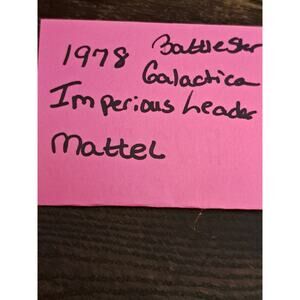 1978 BattleStar
Galactica
Imperious Leader
Mattel